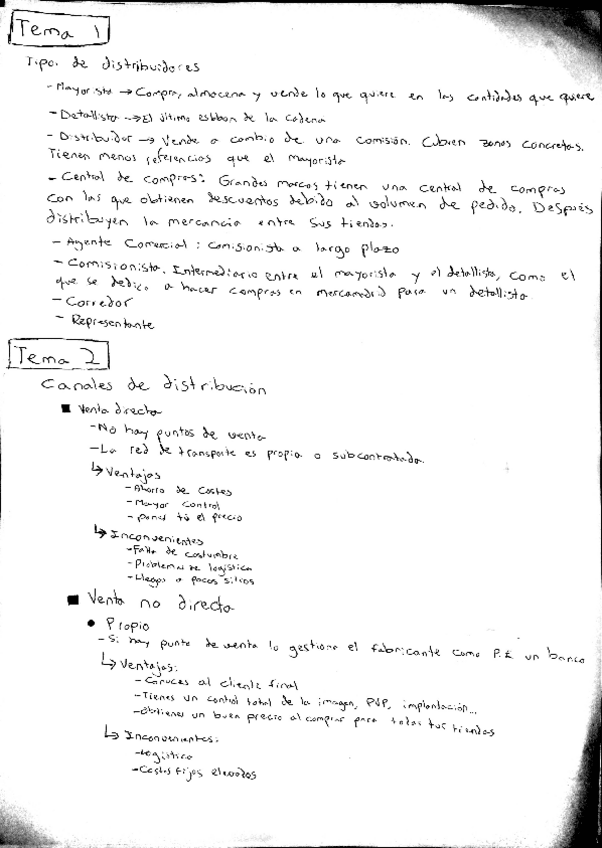 Tema 1
Tipo. de distribuidores
- Mayorista → Compra, almacena y vende lo que quiere en las cantidades que quiere
- Detallista → El último eslabón de la cadena
- Distribuidor → Vende a cambio de una comisión. Cubren zonas concretas.
Tienen menos referencias que el mayorista
- Central de compras: Grandes marcas tienen una central de compras
con las que obtienen descuentos debido al volumen de pedido. Después
distribuyen la mercancia entre sus tiendas.
- Agente Comercial: comisionista a largo plazo
- Comisionista. Intermediario entre el mayorista y el detallista, como el
que se dedica a hacer compras en mercamadrid para un detallista
- Corredor
- Representante
Tema 2
Canales de distribución
■ Venta directa
- No hay puntos de venta
- La red de transporte es propia o subcontratada.
↳ Ventajas
- Ahorro de costes
- Mayor control
- pones tú el precio
↳ Inconvenientes
- Falta de costumbre
- Problemas de logística
- Llegas a pocos sitios
■ Venta no directa
● Propio
- Si hay punto de venta lo gestiona el fabricante como P.E un banco
↳ Ventajas:
- Conoces al cliente final
- Tienes un control total de la imagen, PVP, implantación...
- Obtienes un buen precio al comprar para todas tus tiendas
↳ Inconvenientes:
- Logística
- Costes fijos elevados